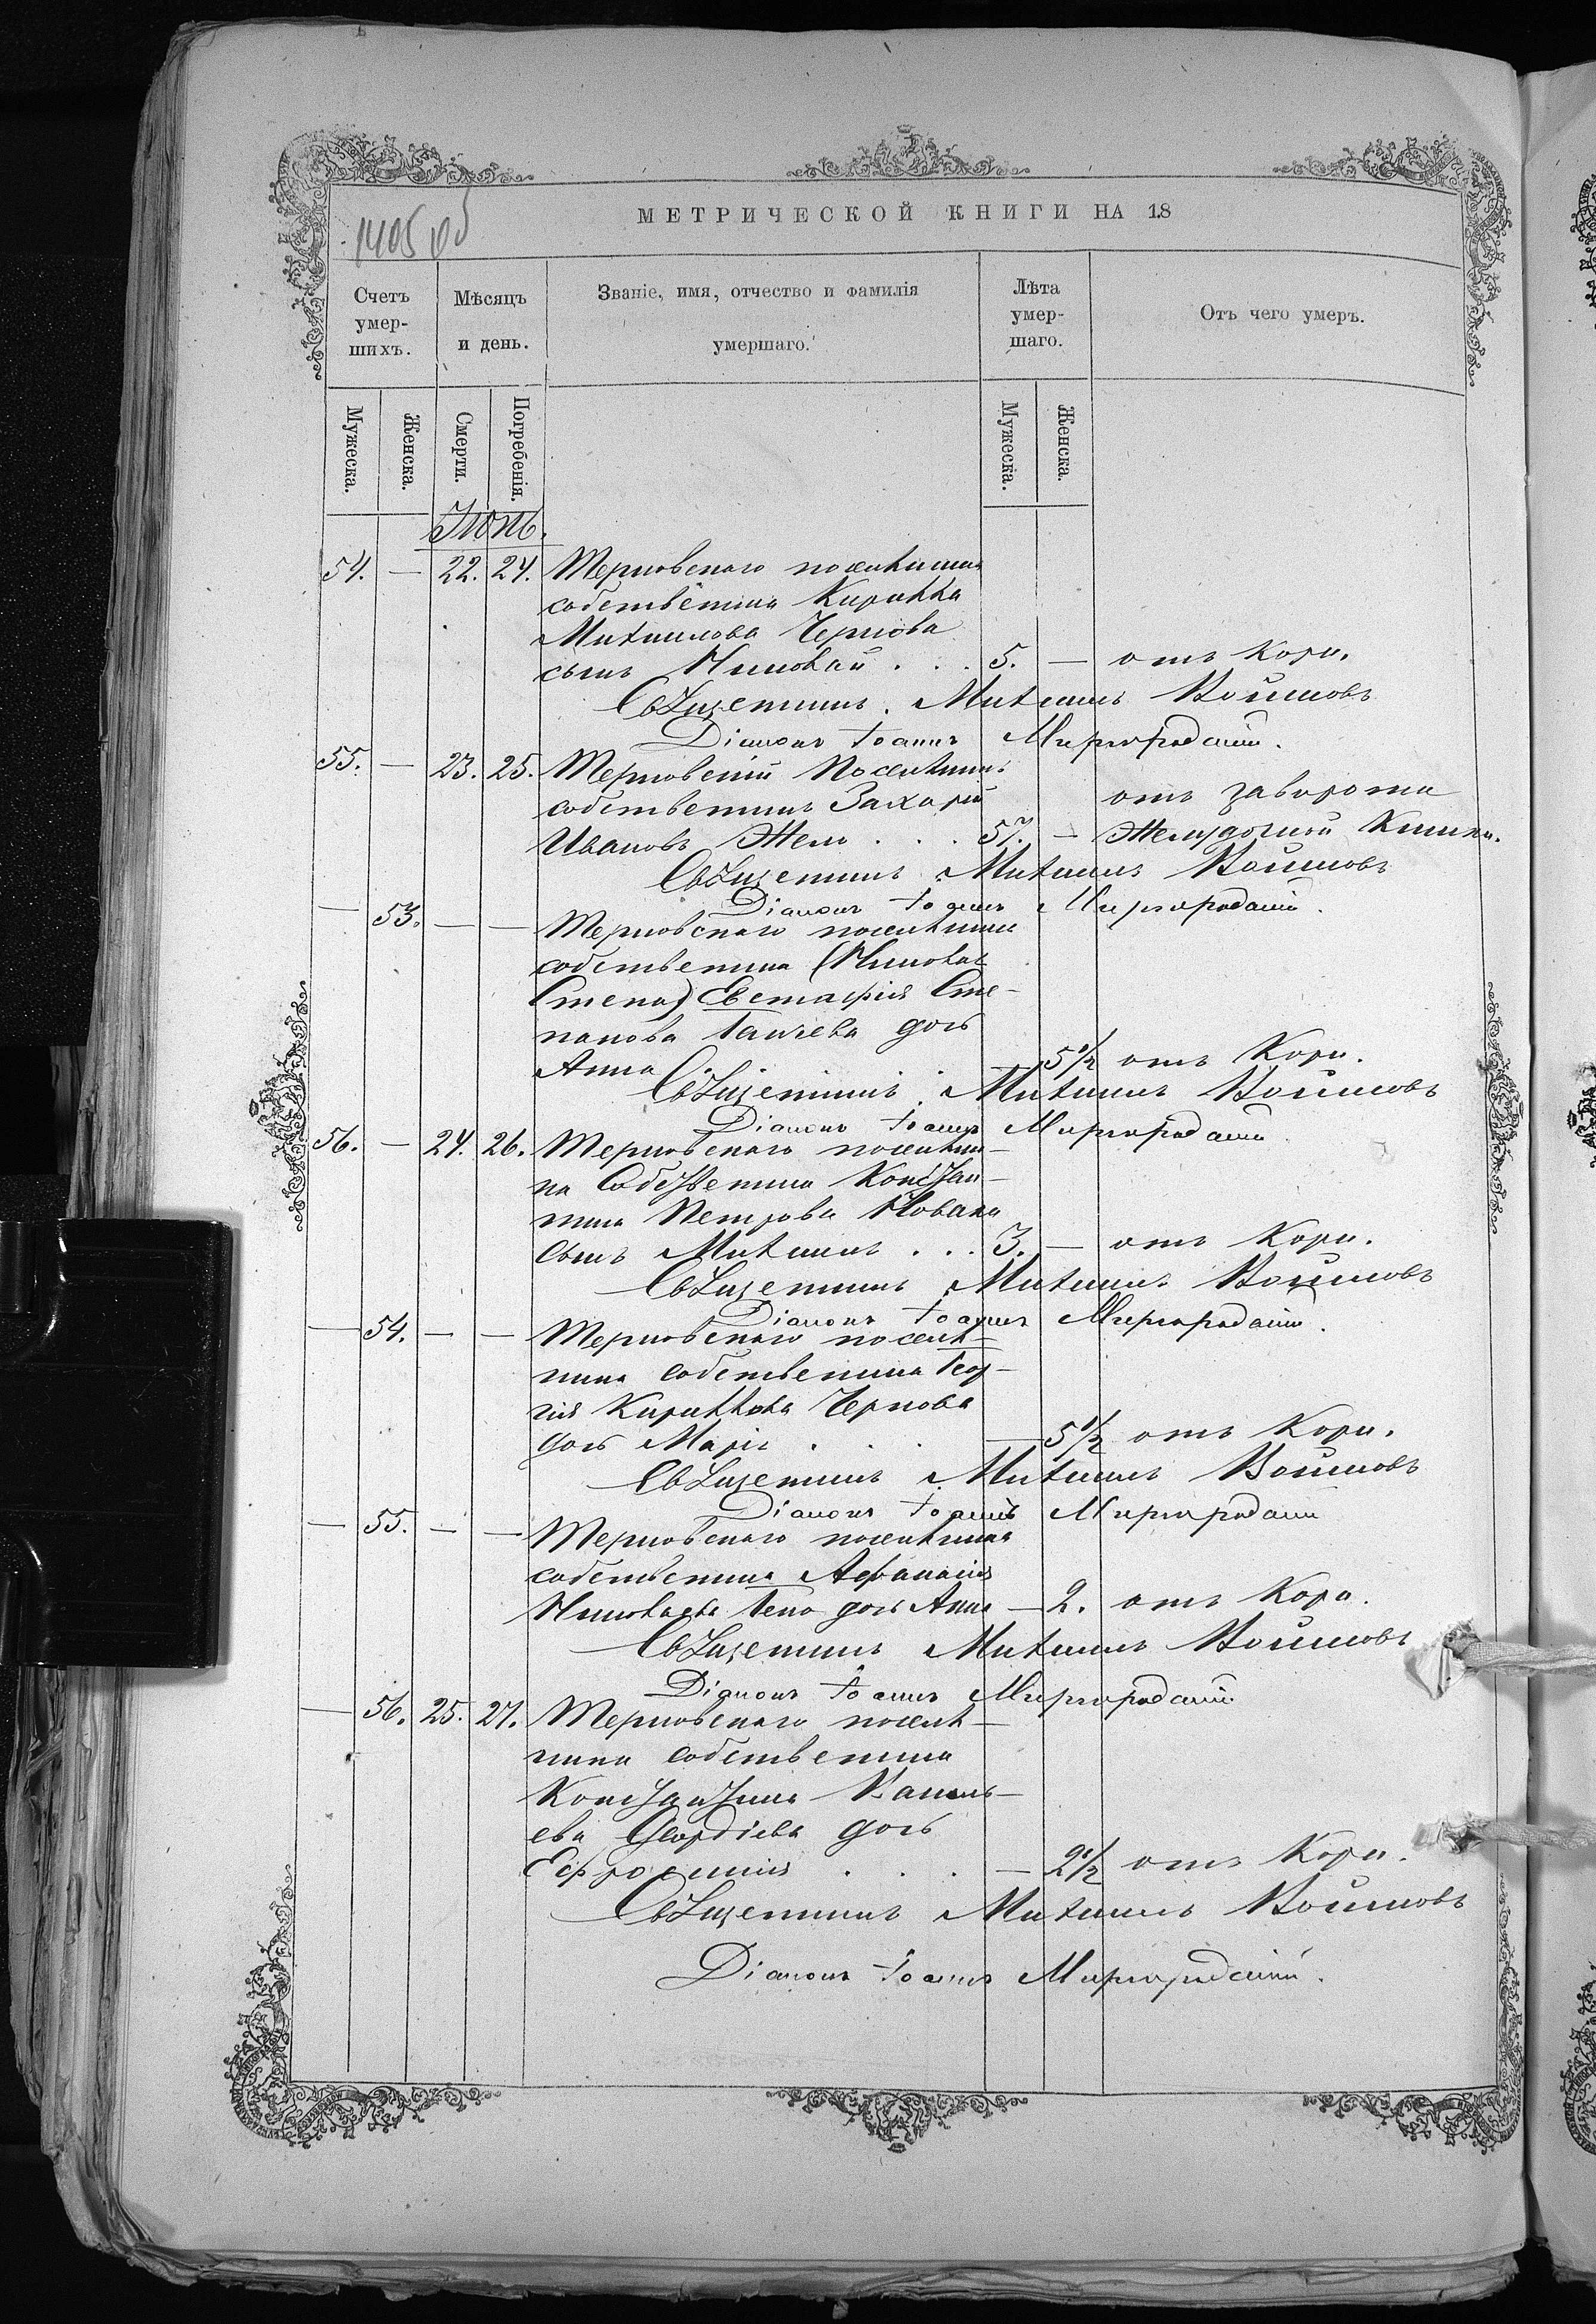 1405 об
МЕТРИЧЕСКОЙ КНИГИ НА 18
Счетъ умер-шихъ.
Мѣсяцъ и день.
Званіе, имя, отчество и фамилія умершаго.
Лѣта умер-шаго.
Отъ чего умеръ.
Мужеска. Женска. Смерти. Погребенія. Мужеска. Женска.
54. — 22. 24. Терновскаго поселянина
собственника Кирилла
Михайлова Чернова
сынъ Николай . . . 5. — отъ Кори.
Священникъ Михаилъ Войновъ
Діаконъ Іоаннъ Миргородскій.
55. — 23. 25. Терновскій Поселянинъ
собственникъ Захарій отъ заворота
Ивановъ Желю . . . 57. — Желудочной Кишки.
Священникъ Михаилъ Войновъ
Діаконъ Іоаннъ Миргородскій.
— 53. — — Терновскаго поселянина
собственника (Николая
Степа) Евстафія Сте-
панова дочь
Анна . . — 5½ отъ Кори.
Священникъ Михаилъ Войновъ
Діаконъ Іоаннъ Миргородскій
56. — 24. 26. Терновскаго поселяни-
на Собственника Констан-
тина Петрова Новака
сынъ Михаилъ . . . 3. — отъ Кори.
Священникъ Михаилъ Войновъ
Діаконъ Іоаннъ Миргородскій.
— 54. — — Терновскаго поселя-
нина собственника Геор-
гія Кириллова Чернова
дочь Марія . . . — 5½ отъ Кори.
Священникъ Михаилъ Войновъ
Діаконъ Іоаннъ Миргородскій
— 55. — — Терновскаго поселянина
собственника Афанасія
Николаева дочь Анна — 2. отъ Кори.
Священникъ Михаилъ Войновъ
Діаконъ Іоаннъ Миргородскій
— 56. 25. 27. Терновскаго поселя-
нина собственника
Константина Василь-
ева Георгіева дочь
Ефросинія . . . — 2½ отъ Кори.
Священникъ Михаилъ Войновъ
Діаконъ Іоаннъ Миргородскій.